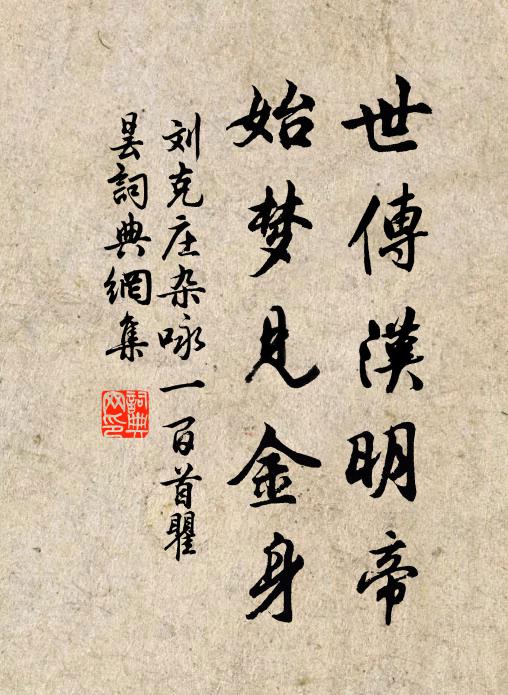 世傳漢明帝
始梦見金身
刘克庄杂咏一百首瞿
昙詞典網集
詞典
网印